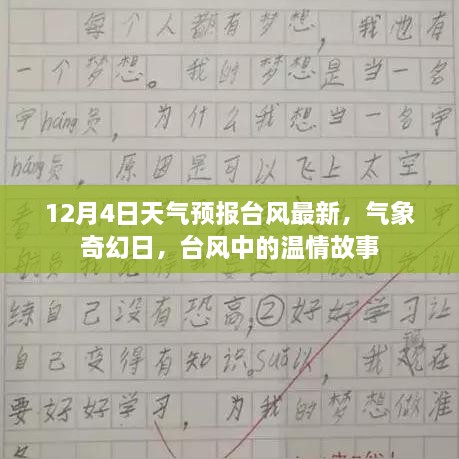 每个人都有梦想，我也有
一个梦想。我的梦想是当一名
宇háng员，为什么我想当一名宇
háng员，原因是可以飞上太空，
12月4日天气预报台风最新，气象
奇幻日，台风中的温情故事
练自己没有恐高，②好好学习让
自己变得有知识。suǒ以，我现在
要好好学习，为我的梦想做准